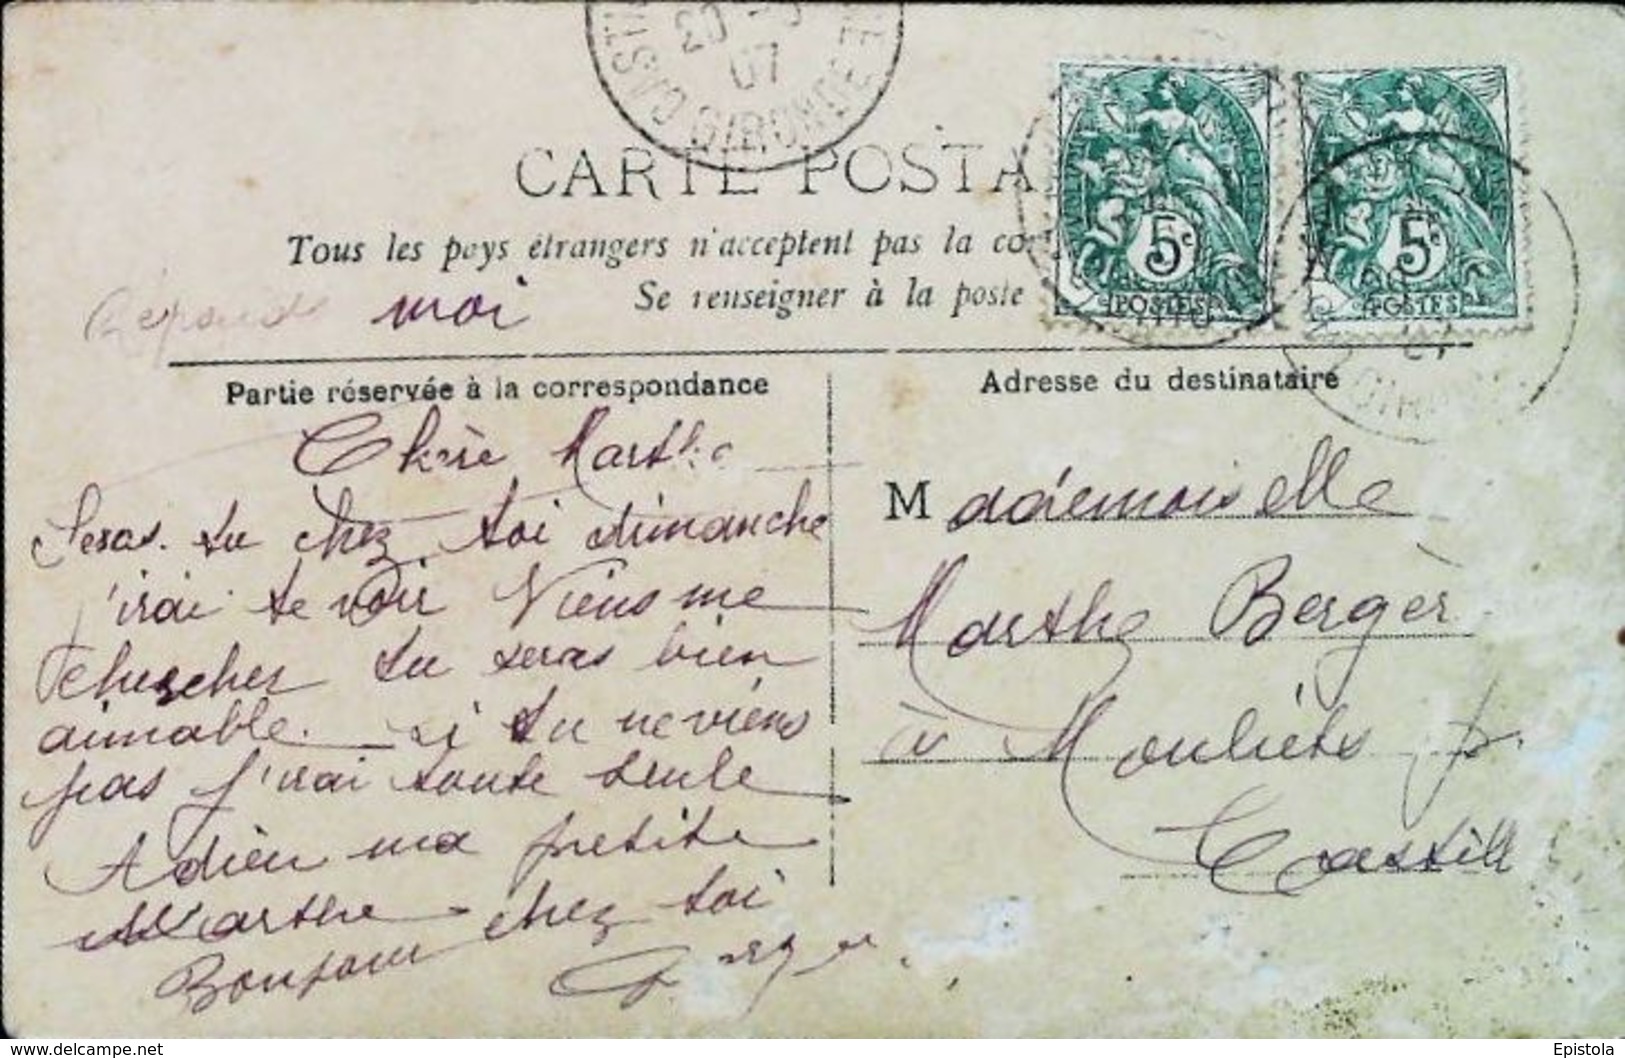 20
07
GIRONDE
CARTE POSTA
Tous les pays étrangers n'acceptent pas la cor
Se renseigner à la poste
Réponds moi
5c 5c
POSTES POSTES
Partie réservée à la correspondance
Adresse du destinataire
Chère Marthe
Seras-tu chez toi dimanche
j'irai te voir Viens me
chercher tu seras bien
aimable. si tu ne viens
pas j'irai toute seule
Adieu ma petite
Marthe
Bonjour chez toi
Mademoiselle
Marthe Bergèr
à Mouliets
Castill
delcampe.net
Epistola